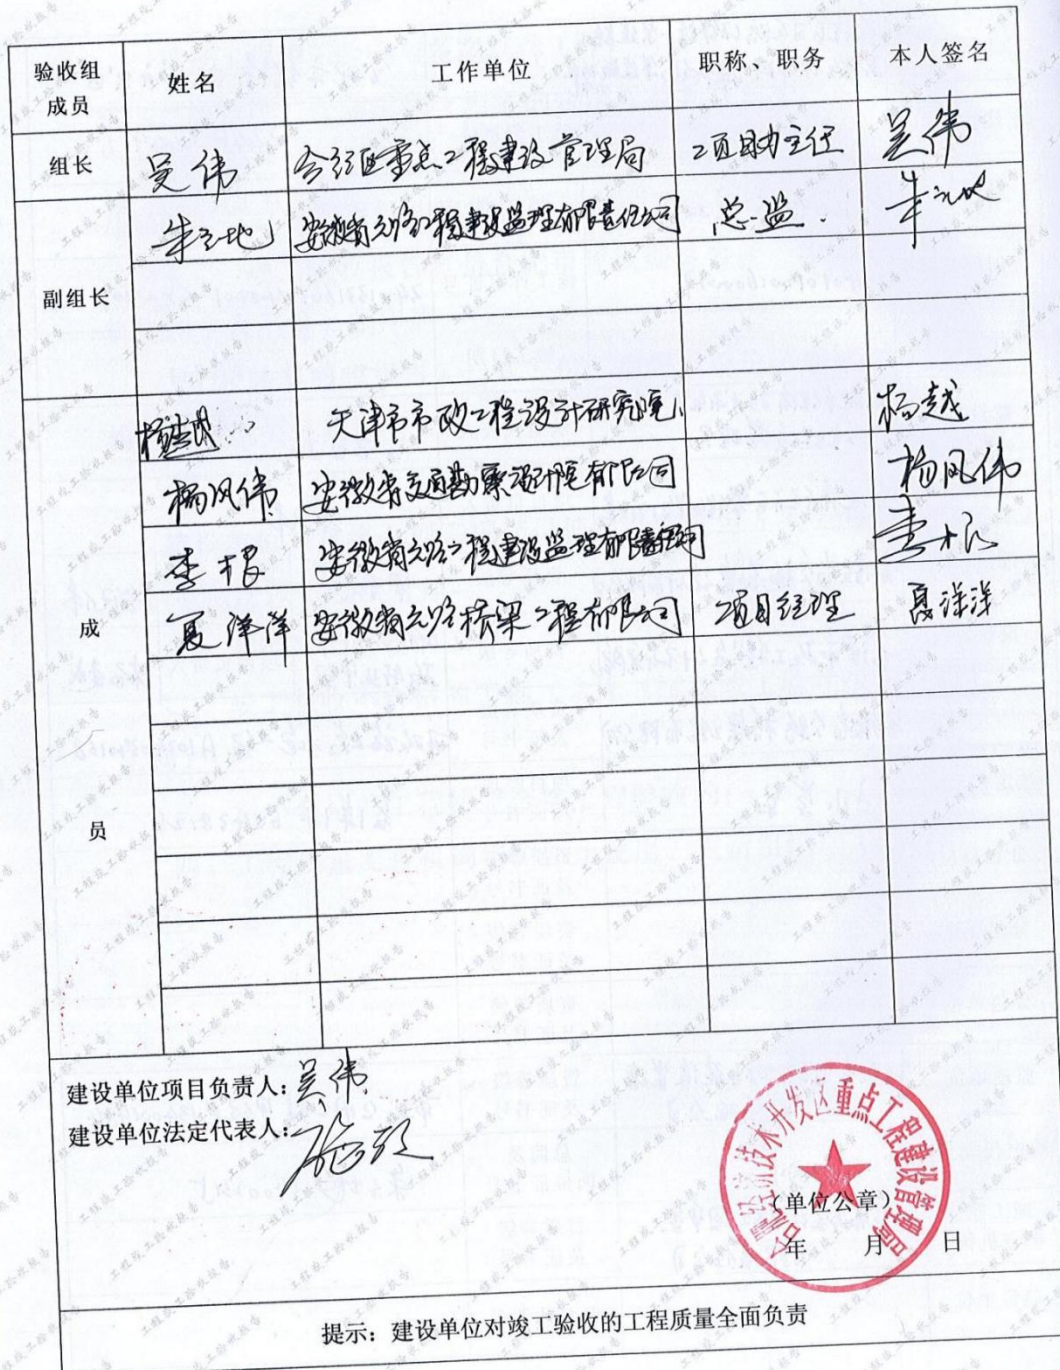 验收组成员 姓名 工作单位 职称、职务 本人签名
组长 吴伟 合经区重点工程建设管理局 项目办主任 吴伟
副组长 朱之地 安徽省公路工程建设监理有限责任公司 总监
成员
杨越 天津市市政工程设计研究院 杨越
杨风伟 安徽省交通勘察设计院有限公司 杨风伟
李根 安徽省公路工程建设监理有限责任公司 李根
夏洋洋 安徽省公路桥梁工程有限公司 项目经理 夏洋洋
建设单位项目负责人：吴伟
建设单位法定代表人：
合肥经济技术开发区重点工程建设管理局
（单位公章）
年 月 日
提示：建设单位对竣工验收的工程质量全面负责
工程竣工验收报告